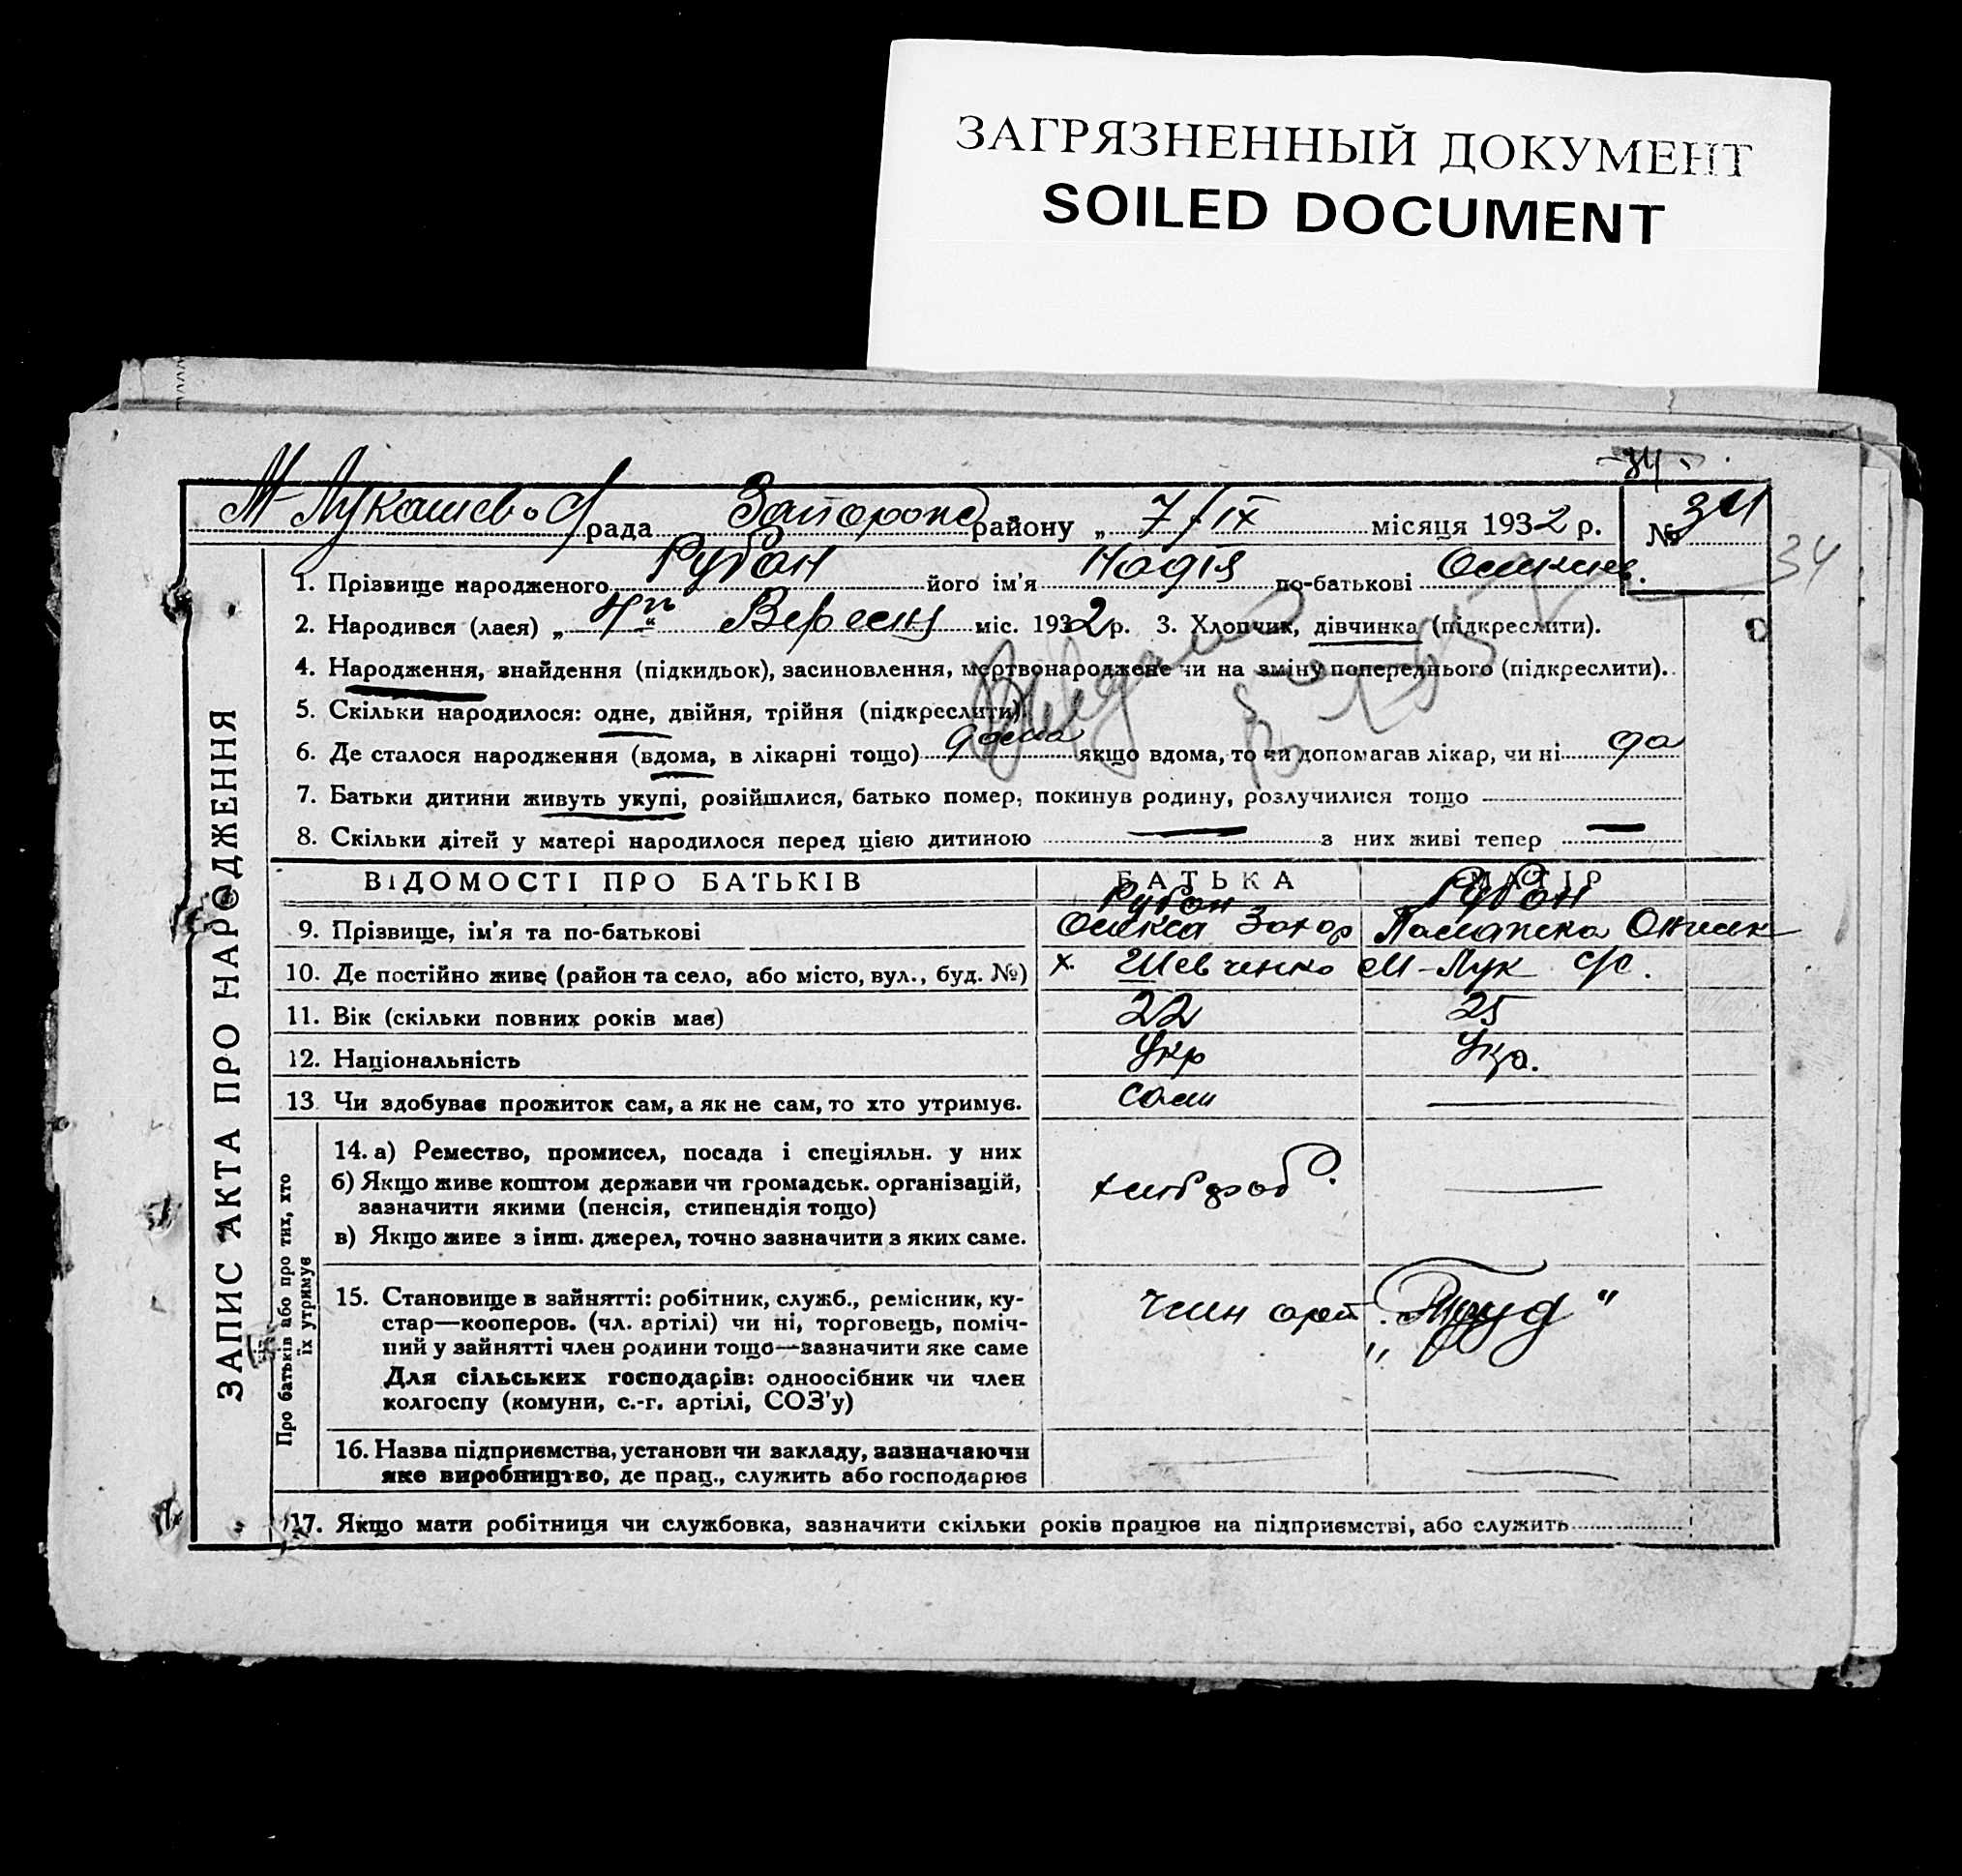 ЗАГРЯЗНЕННЫЙ ДОКУМЕНТ
SOILED DOCUMENT
34
М Лукашев рада Запорожс району „ 7/IX місяця 1932 р. № 34
34
ЗАПИС АКТА ПРО НАРОДЖЕННЯ
1. Прізвище народженого Рубан його ім'я Надія по-батькові
2. Народився (лася) „ Вересня міс. 1932 р. 3. Хлопчик, дівчинка (підкреслити).
4. Народження, знайдення (підкидьок), засиновлення, мертвонароджене чи на зміну попереднього (підкреслити).
5. Скільки народилося: одне, двійня, трійня (підкреслити)
6. Де сталося народження (вдома, в лікарні тощо) дома якщо вдома, то чи допомагав лікар, чи ні да
7. Батьки дитини живуть укупі, розійшлися, батько помер, покинув родину, розлучилися тощо
8. Скільки дітей у матері народилося перед цією дитиною — з них живі тепер —
ВІДОМОСТІ ПРО БАТЬКІВ БАТЬКА МАТІР
Рубан Рубан
9. Прізвище, ім'я та по-батькові Захар
10. Де постійно живе (район та село, або місто, вул., буд. №) х. Шевченко М-Лук с/с.
11. Вік (скільки повних років має) 22 25
12. Національність Укр Укр.
13 Чи здобуває прожиток сам, а як не сам, то хто утримує. сам —
Про батьків або про тих, хто
їх утримує
14. а) Ремество, промисел, посада і спеціяльн. у них
б) Якщо живе коштом держави чи громадськ. організацій, хлібороб. —
зазначити якими (пенсія, стипендія тощо)
в) Якщо живе з інш. джерел, точно зазначити з яких саме.
15. Становище в зайнятті: робітник, служб., ремісник, ку-
стар—кооперов. (чл. артілі) чи ні, торговець, поміч- член арт. „Труд"
ний у зайнятті член родини тощо—зазначити яке саме
Для сільських господарів: одноосібник чи член
колгоспу (комуни, с.-г. артілі, СОЗ'у)
16. Назва підприємства, установи чи закладу, зазначаючи — —
яке виробництво, де прац., служить або господарює
17. Якщо мати робітниця чи службовка, зазначити скільки років працює на підприємстві, або служить